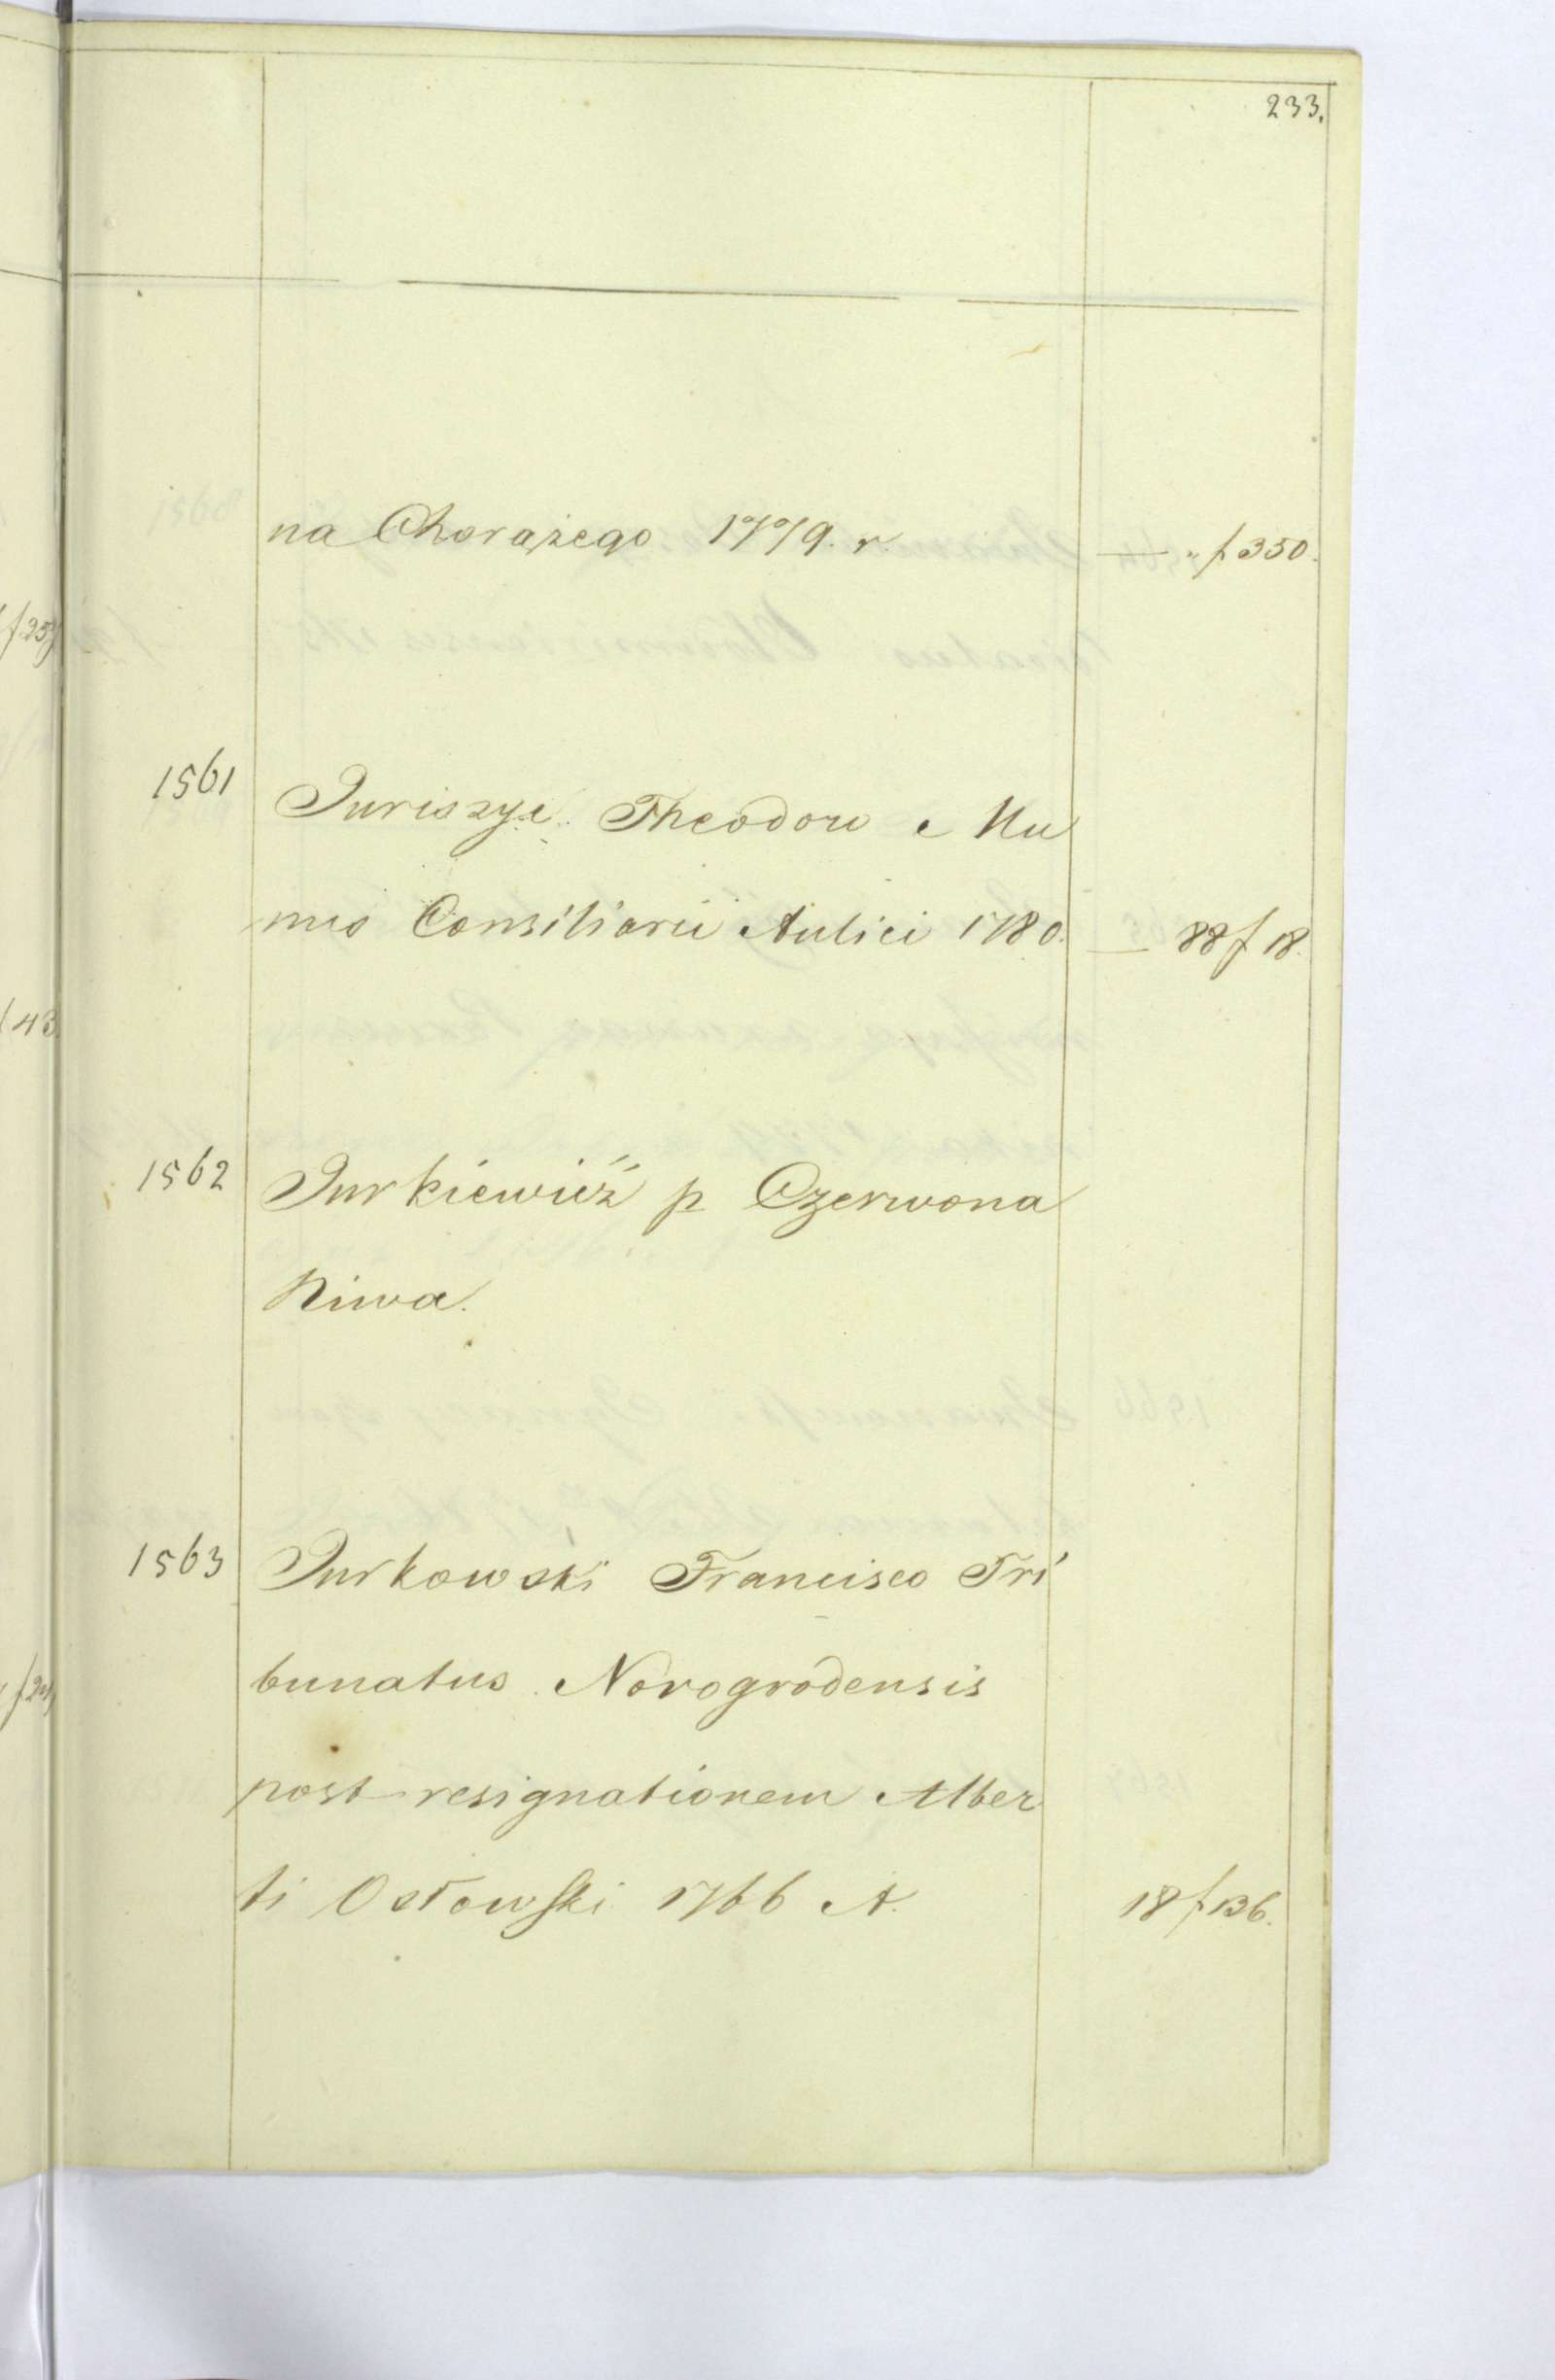 233.
na Chorążego 1779. r. — " f 350.
1561 Juriszyc Theodoro Mu
nus Consiliarii Aulici 1780. — 88 f 18.
1562 Jurkiewicz p Czerwona
Niwa.
1563 Jurkowski Francisco Tri
bunatus Novogrodensis
post resignationem Alber
ti OsTowski 1766 A. 18 f 136.